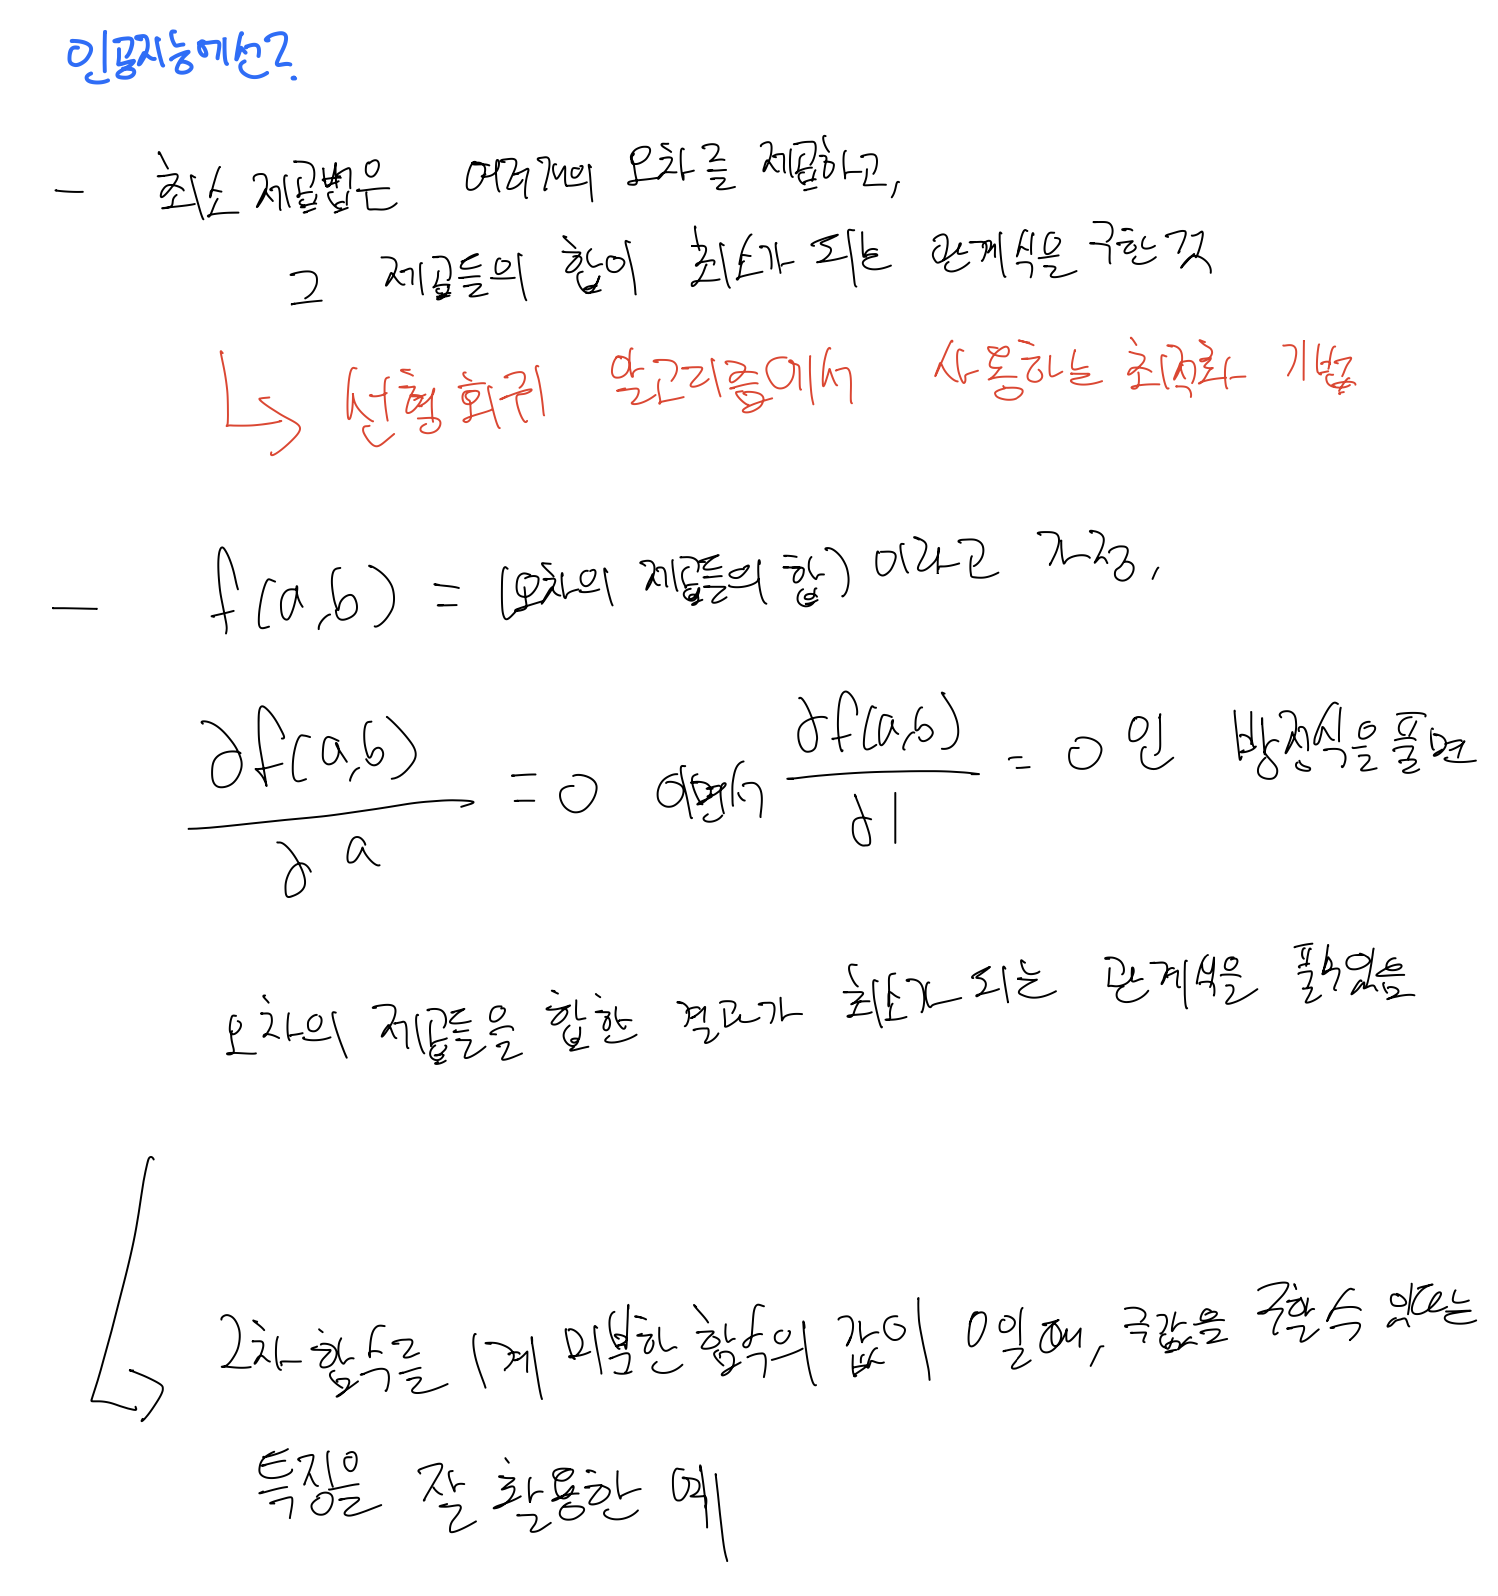 인공지능에선?
- 최소제곱법은 여러개의 오차를 제곱하고,
그 제곱들의 합이 최소가 되는 관계식을 구한 것
↳ 선형회귀 알고리즘에서 사용하는 최적화 기법
- f(a,b) = (오차의 제곱들의 합) 이라고 가정,
∂f(a,b)/∂a = 0 이면서 ∂f(a,b)/∂l = 0 인 방정식을 풀면
오차의 제곱들을 합한 결과가 최소가 되는 관계식을 풀 수 있음
↳ 2차함수를 1계 미분한 함수의 값이 0일 때, 극값을 구할 수 있다는
특징을 잘 활용한 예